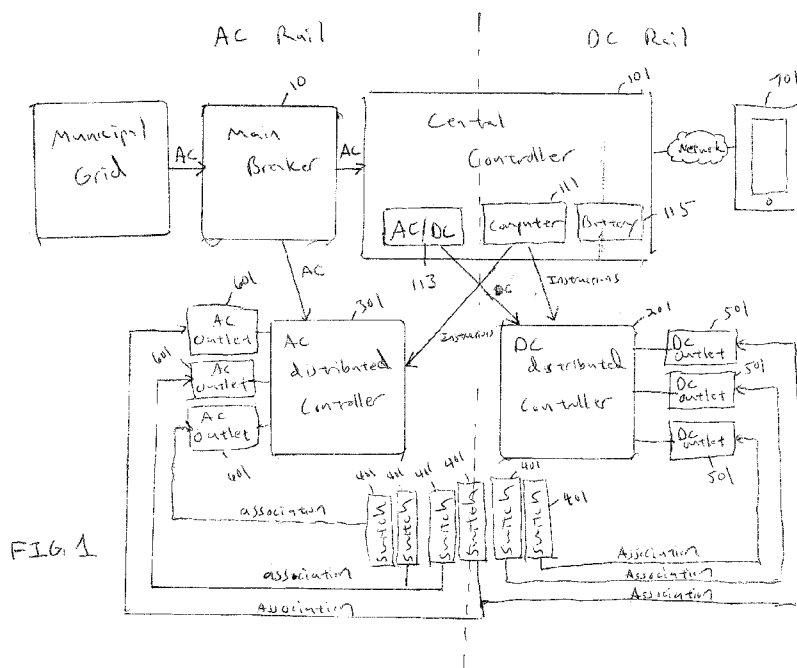 AC Rail
DC Rail
10
101
701
Municipal
Grid
AC
Main
Breaker
AC
Cental
Controller
Network
111
AC/DC
Computer
Battery
115
113
AC
DC
Instructions
Instructions
601
AC
Outlet
601
AC
outlet
AC
outlet
601
301
AC
distributed
Controller
201
DC
distributed
Controller
501
DC
outlet
501
DC
outlet
DC
outlet
501
401
401
401
401
401
401
Switch
Switch
Switch
Switch
Switch
Switch
association
association
Association
Association
Association
Association
FIG. 1